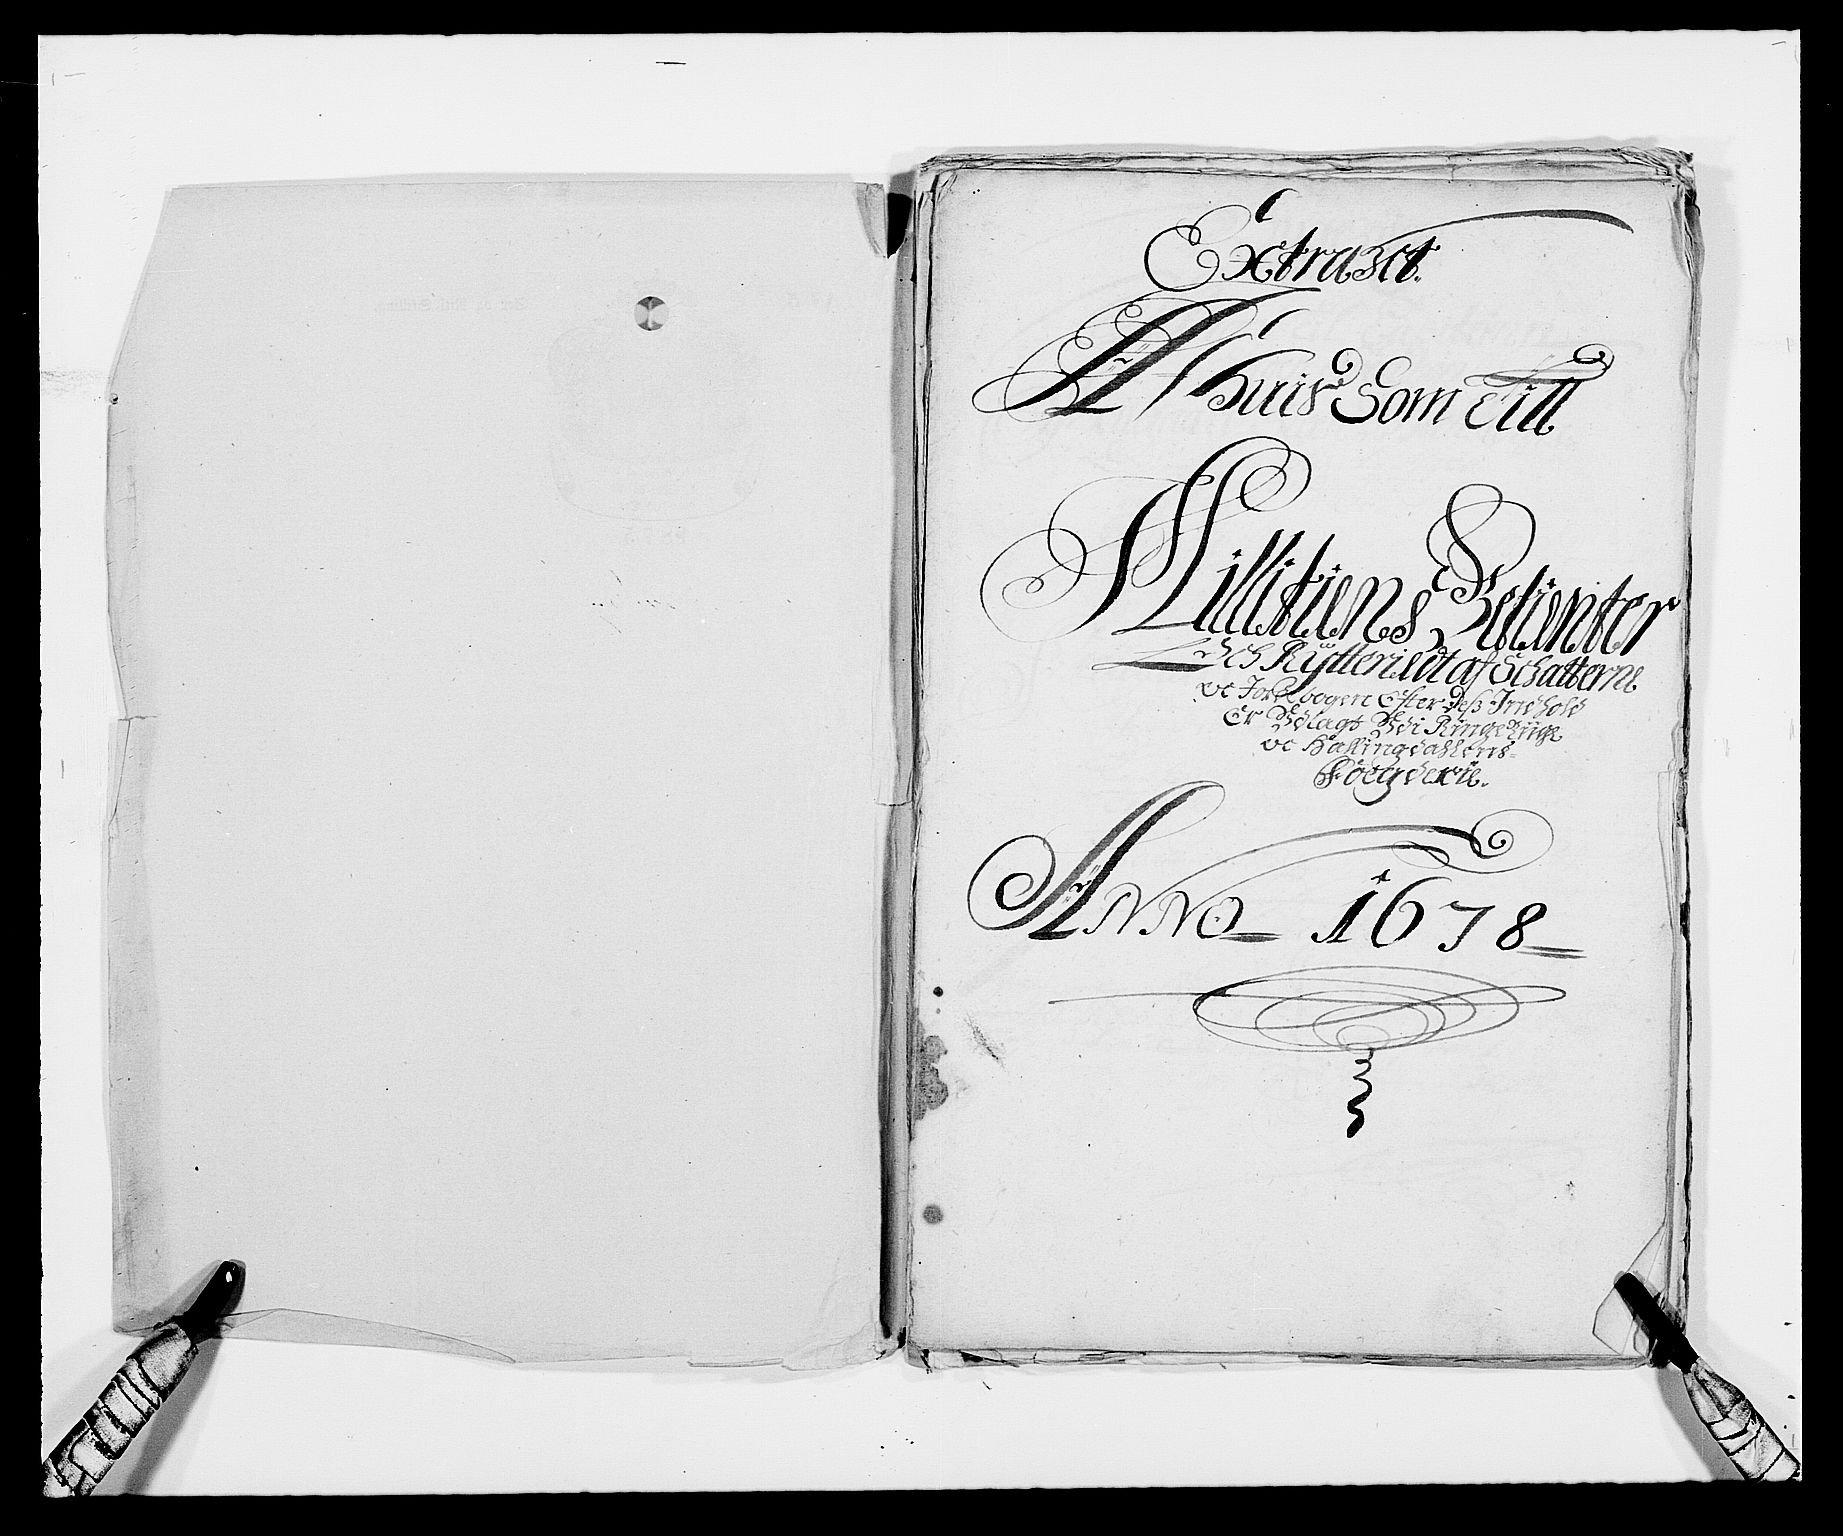 Extract
Af huis Som till
Millitiens Betienter
och Rytteriedt af Schatterne
oc Jordebogen Efter deß Indhold
Er Udlagt Udi Ringerige
oc Hallingdahlens
Foegderie.
Anno 1678